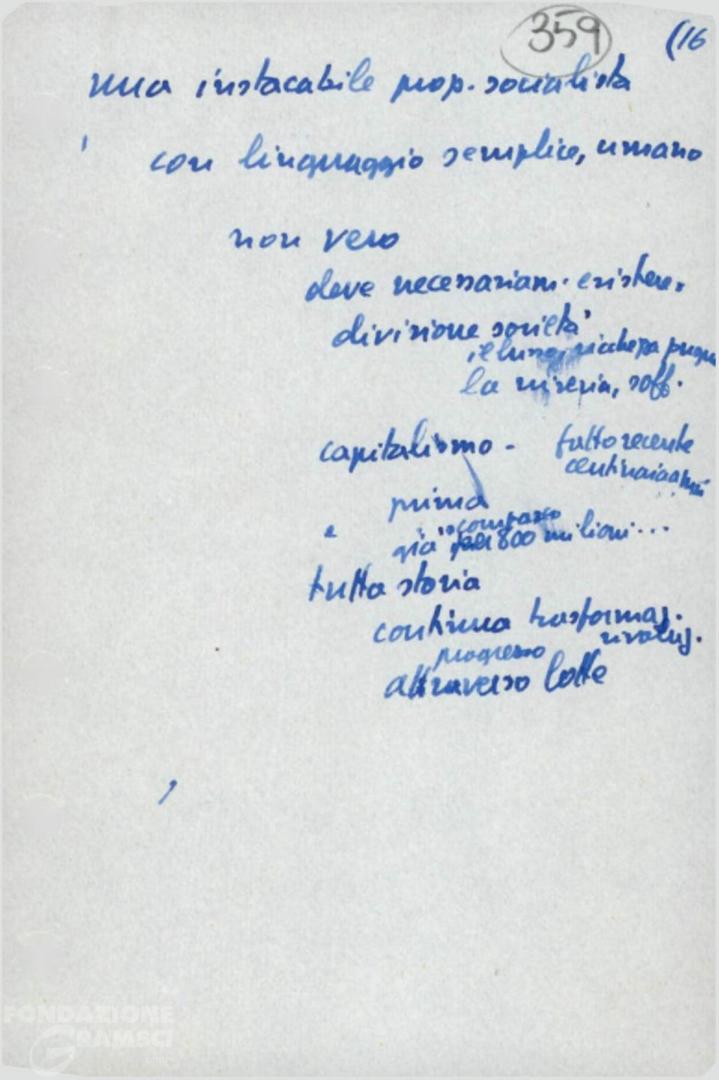 359
(16
una instacabile prop. socialista
con linguaggio semplice, umano
non vero
deve necessariam. esistere.
divisione società
il lusso, ricchezza
la miseria, soff.
capitalismo - fatto recente
centinaia anni
prima
è già scomparso
per 800 milioni...
tutta storia
continua trasformaz.
rivoluz.
progresso
attraverso lotte
FONDAZIONE
GRAMSCI